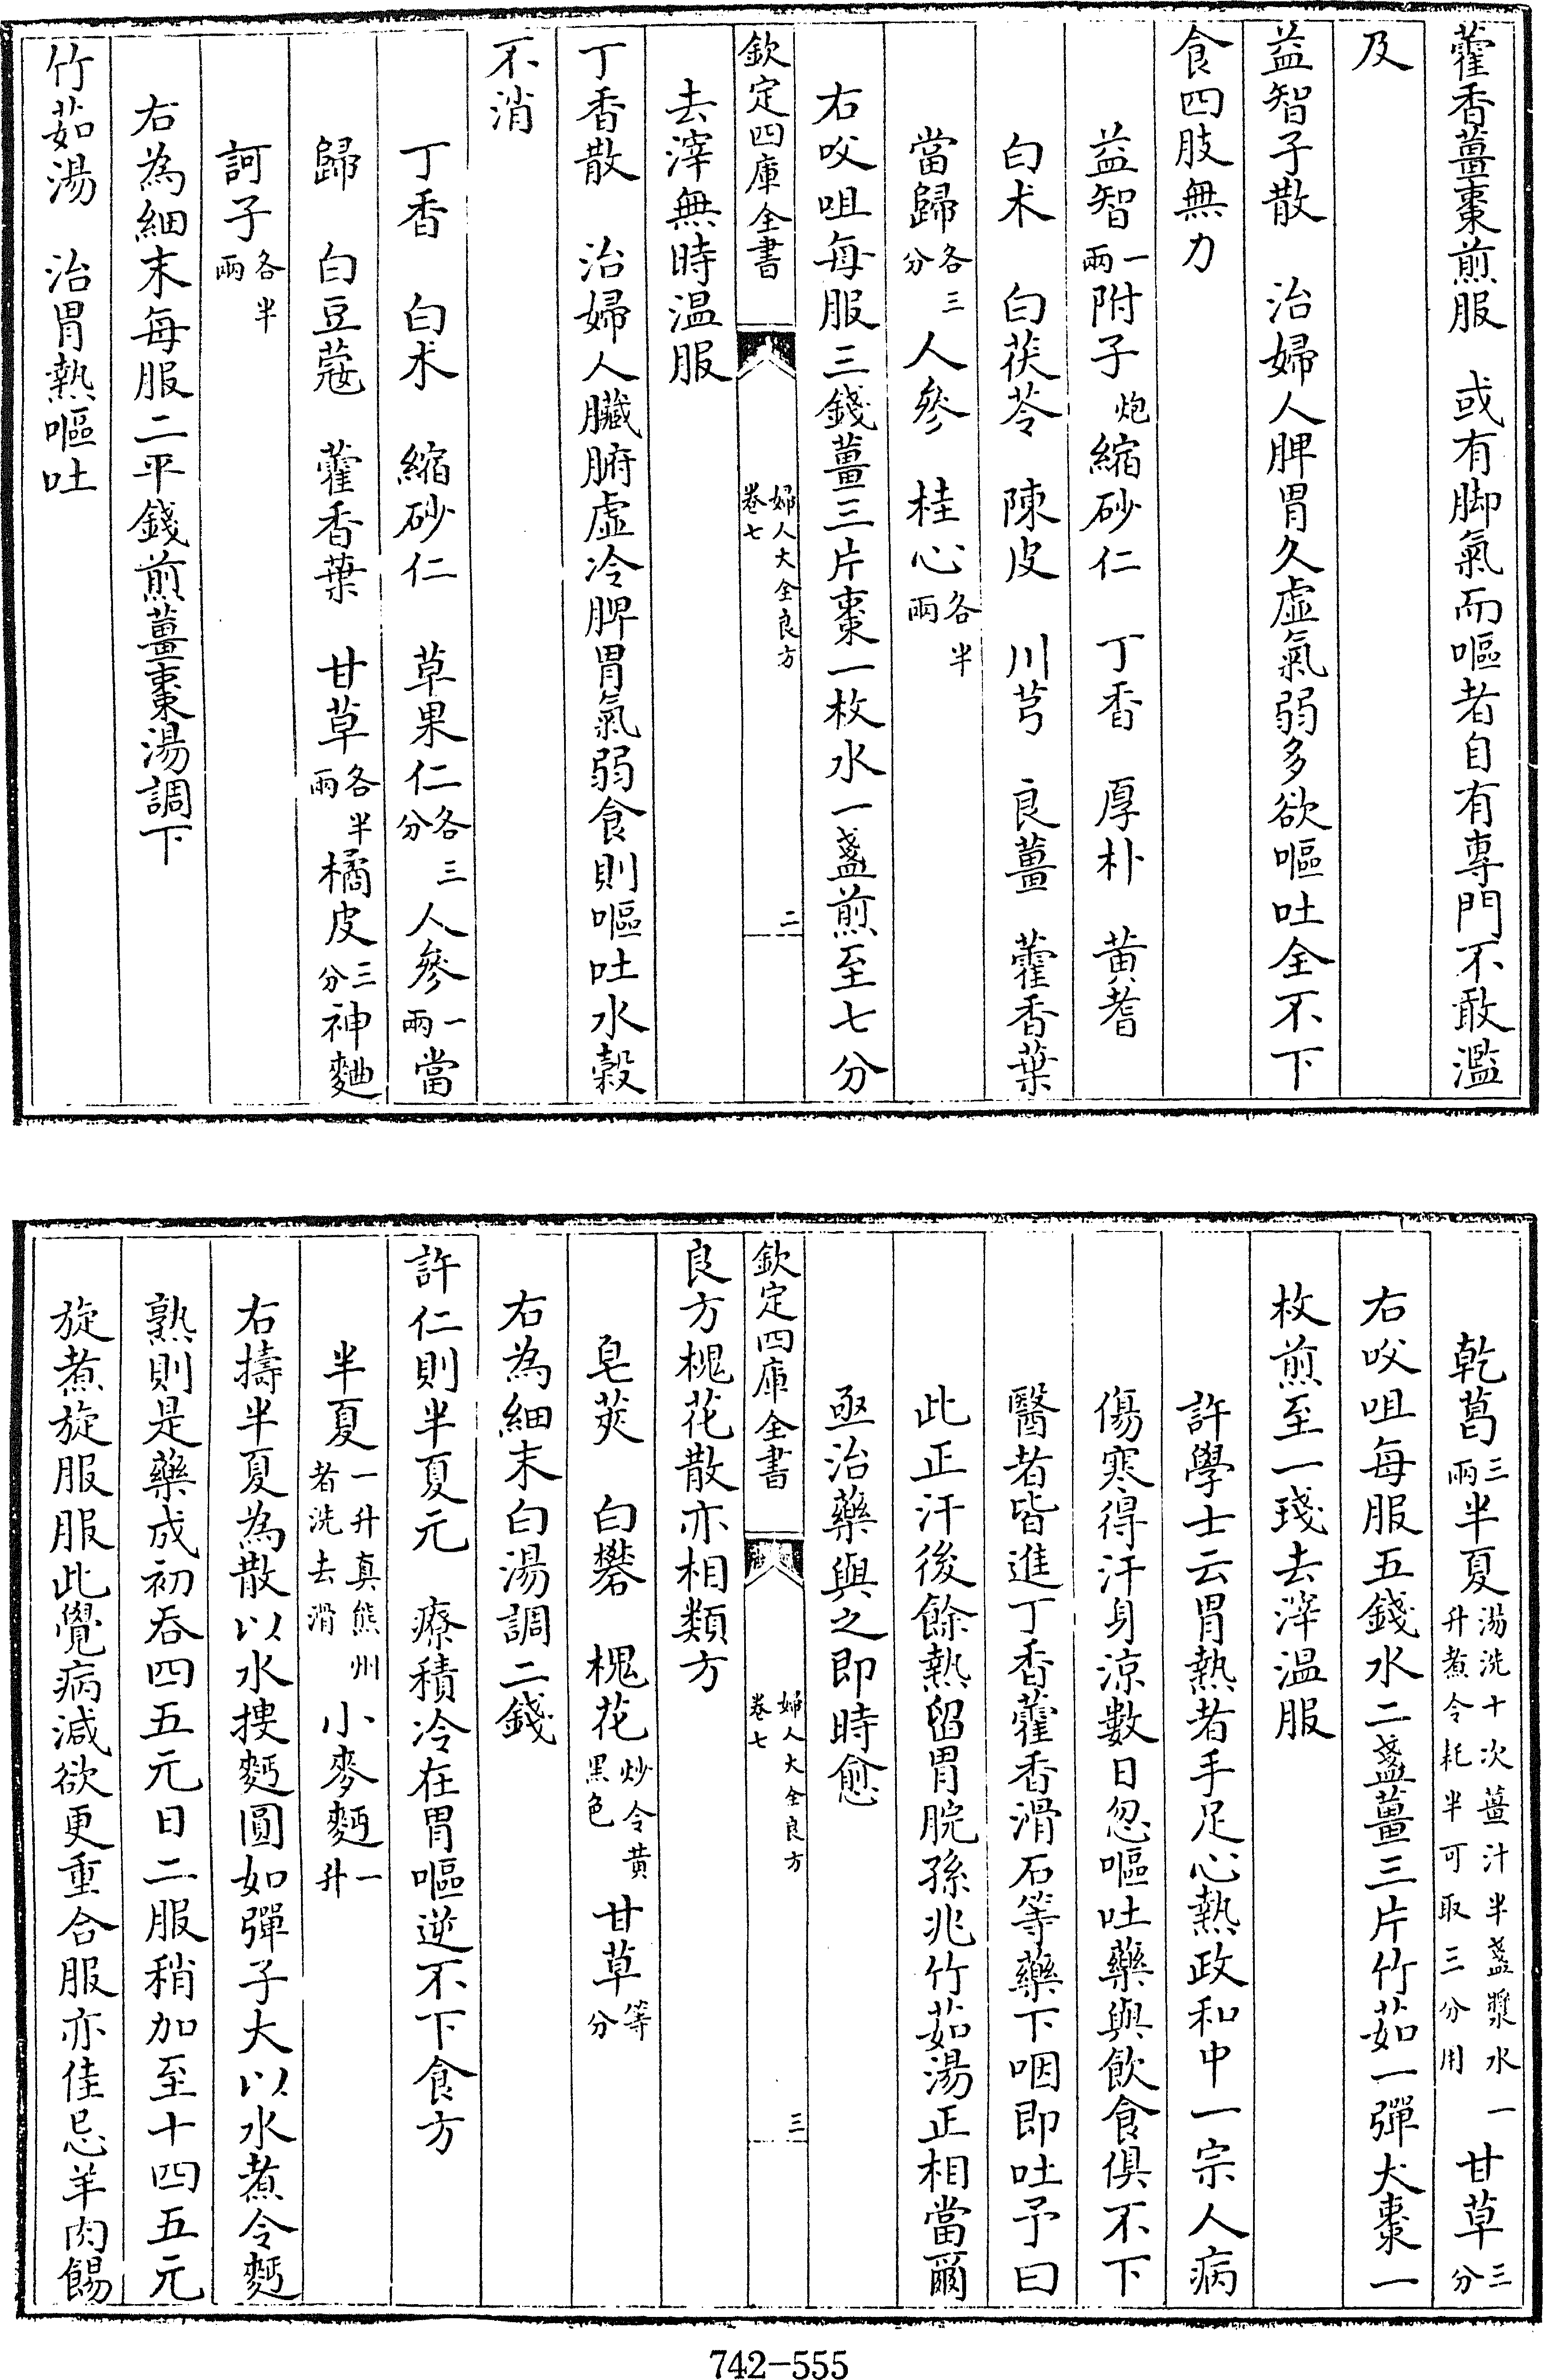 藿香薑棗煎服　或有脚氣而嘔者自有專門不敢濫
及
益智子散　治婦人脾胃久虛氣弱多欲嘔吐全不下
食四肢無力
益智一兩附子炮縮砂仁　丁香　厚朴　黄耆
白术　白茯苓　陳皮　川芎　良薑　藿香葉
當歸各三分人參　桂心各半兩
右㕮咀每服三錢薑三片棗一枚水一盞煎至七分
欽定四庫全書　婦人大全良方卷七　二
去滓無時温服
丁香散　治婦人臟腑虛冷脾胃氣弱食則嘔吐水穀
不消
丁香　白朮　縮砂仁　草果仁各三分人參一兩當
歸　白豆蔻　藿香葉　甘草各半兩橘皮三分神麯
訶子各半兩
右為細末每服二平錢煎薑棗湯調下
竹茹湯　治胃熱嘔吐
乾葛三兩半夏湯洗十次薑汁半盞漿水一升煮令耗半可取三分用甘草三分
右㕮咀每服五錢水二盞薑三片竹茹一彈大棗一
枚煎至一琖去滓温服
許學士云胃熱者手足心熱政和中一宗人病
傷寒得汗身涼數日忽嘔吐藥與飲食俱不下
醫者皆進丁香藿香滑石等藥下咽即吐予曰
此正汗後餘熱留胃脘孫兆竹茹湯正相當爾
亟治藥與之即時愈
欽定四庫全書　婦人大全良方卷七　三
良方槐花散亦相類方
皂莢　白礬　槐花炒令黄黑色甘草等分
右為細末白湯調二錢
許仁則半夏元　療積冷在胃嘔逆不下食方
半夏一升真熊州者洗去滑小麥麪一升
右擣半夏為散以水摟麪圓如彈子大以水煮令麪
熟則是藥成初吞四五元日二服稍加至十四五元
旋煮旋服服此覺病減欲更重合服亦佳忌羊肉餳
742-555